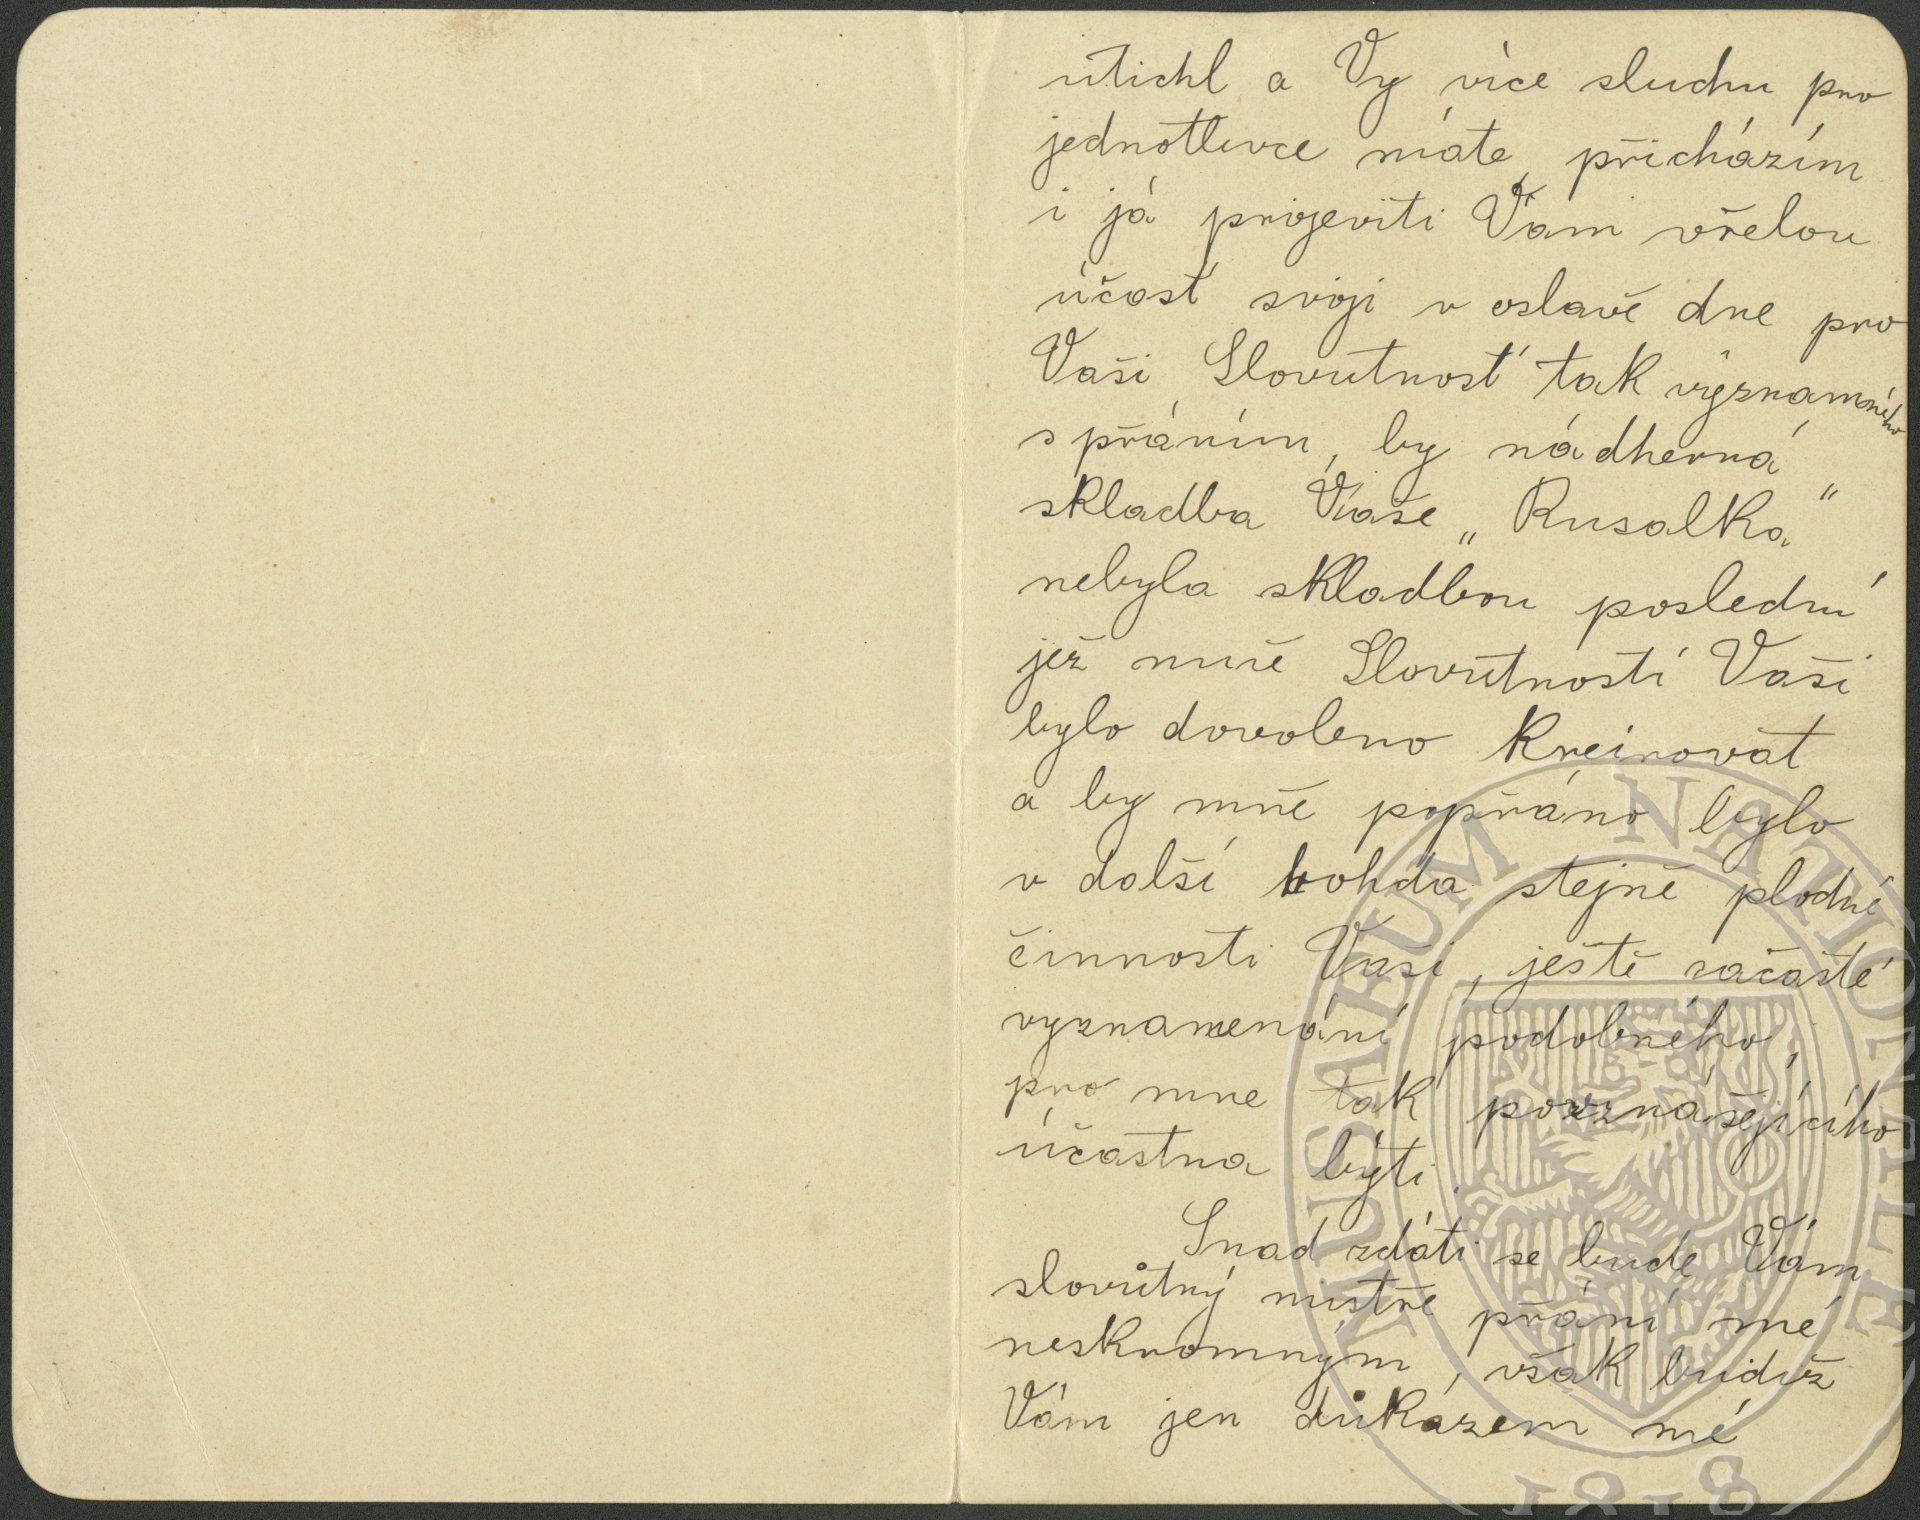 utichl a Vy více sluchu pro
jednotlivce máte, přicházím
i já projeviti Vám vřelou
účast svoji v oslavě dne pro
Vaši Slovutnost tak významného
s přáním, by nádherná
skladba Vaše „Rusalka“
nebyla skladbou poslední
jež mně Slovutností Vaší
bylo dovoleno kreirovat
a by mně popřáno bylo
v další bohda stejně plodné
činnosti Vaší, ještě začasté
vyznamenání podobného,
pro mne tak povznášejícího
účastna býti.
Snad zdáti se bude Vám
slovutný mistře přání mé
neskromným, však budiž
Vám jen důkazem mé
MUSAEUM NATIONALE
1818